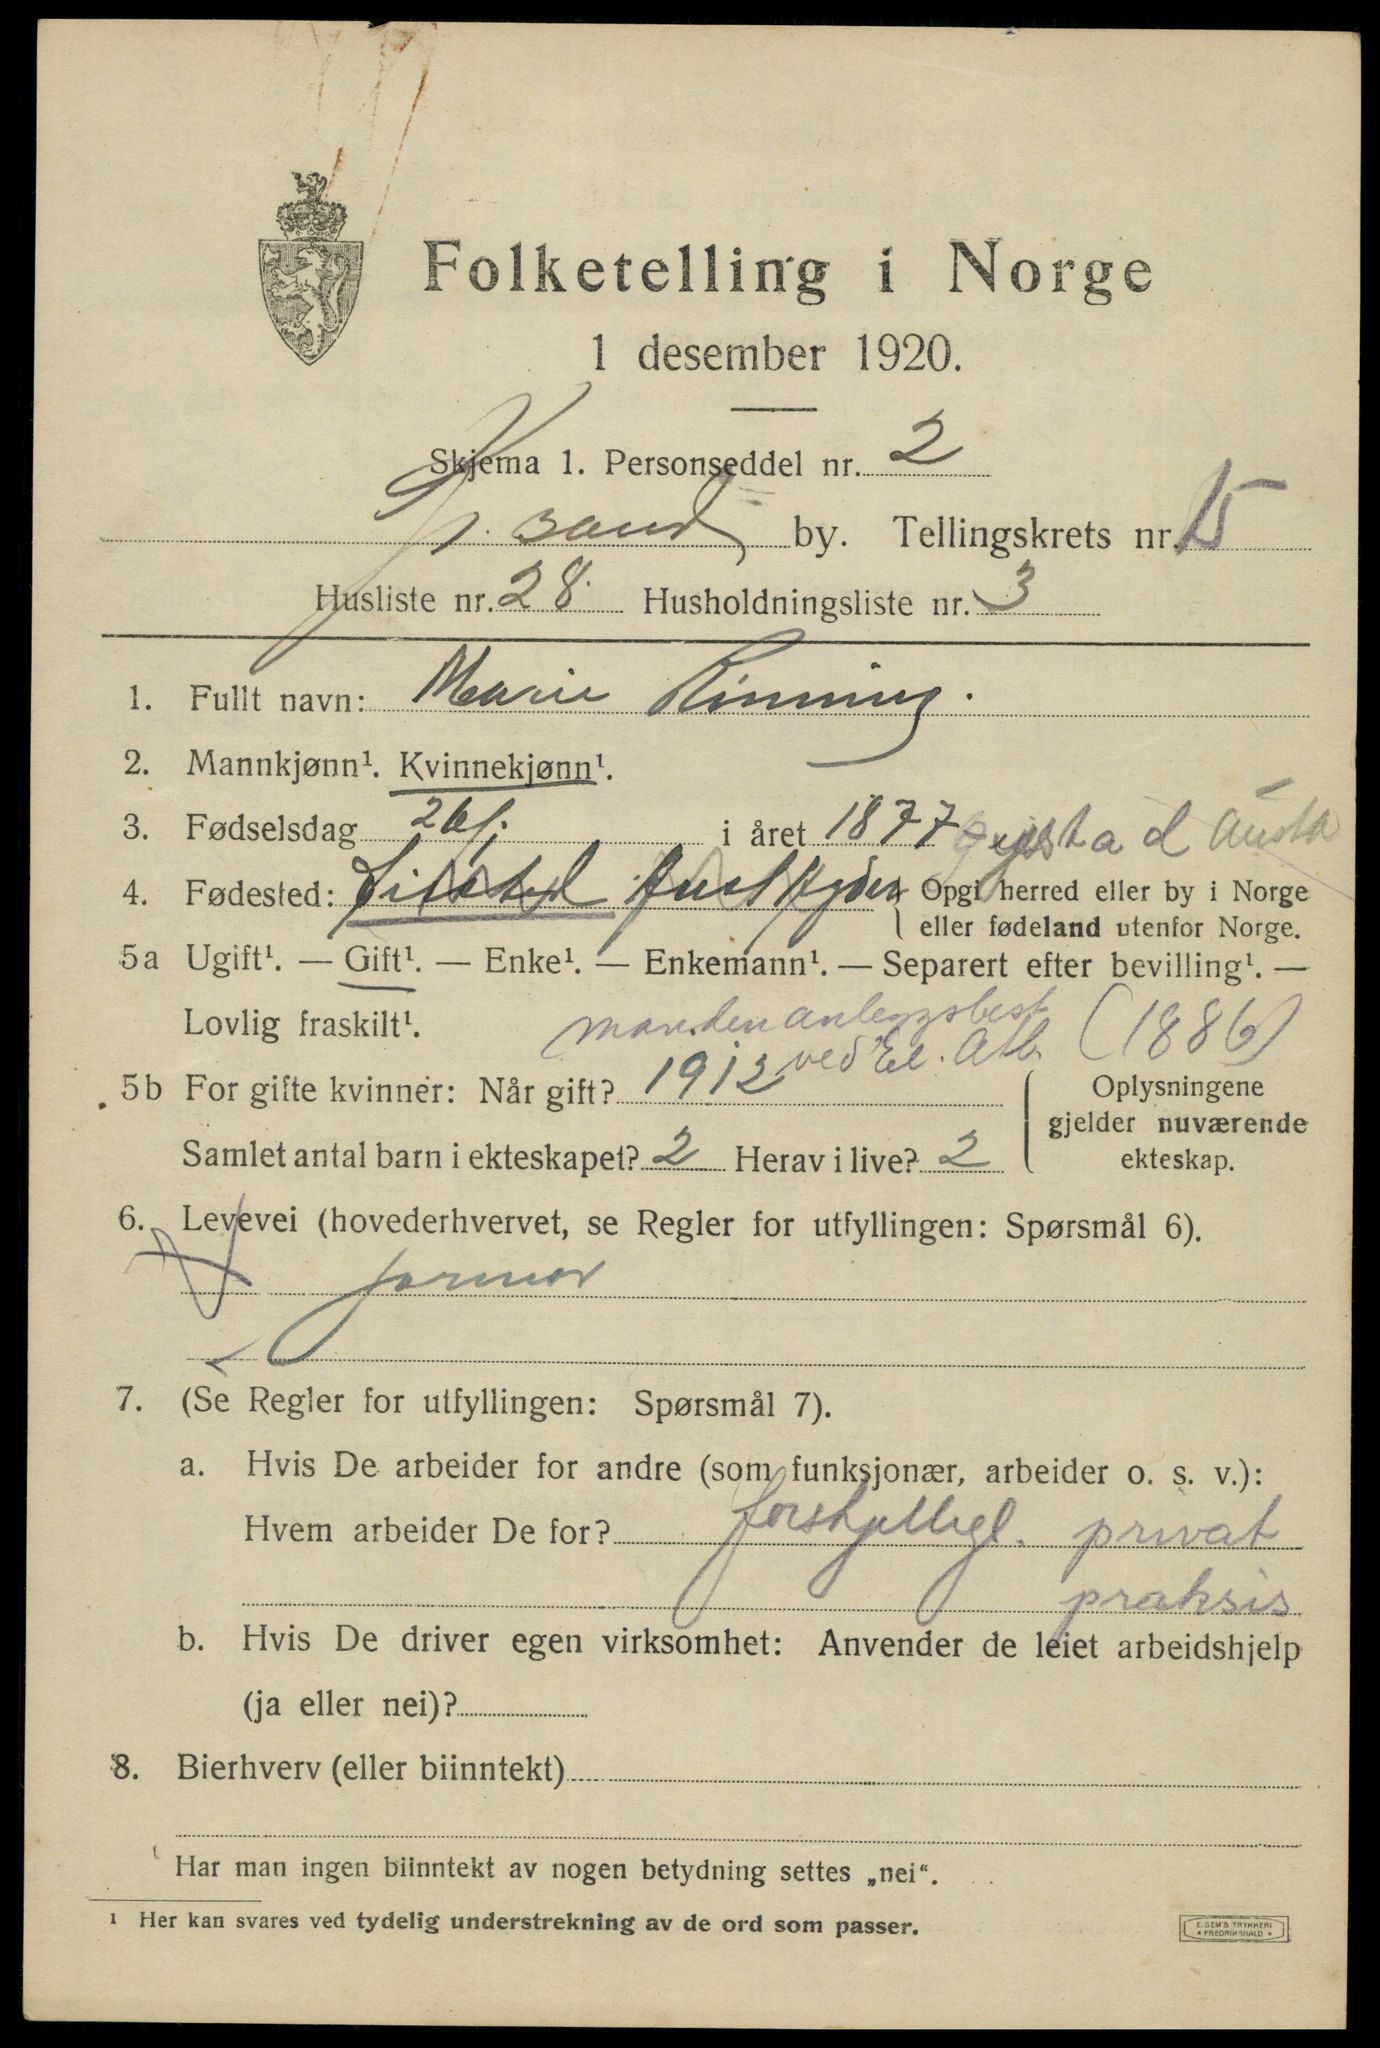 Folketelling i Norge
1 desember 1920.
Skjema 1. Personseddel nr. 2
Kr.sand by. Tellingskrets nr. 15
Husliste nr. 28. Husholdningsliste nr. 3
1. Fullt navn: Marie Rinning.
2. Mannkjønn¹. Kvinnekjønn¹.
3. Fødselsdag 26/ i året 1877
4. Fødested: Opgi herred eller by i Norge
eller fødeland utenfor Norge.
5a Ugift¹. — Gift¹. — Enke¹. — Enkemann¹. — Separert efter bevilling¹. —
Lovlig fraskilt¹. manden anleggsbest. (1886)
ved El.
5b For gifte kvinner: Når gift? 1912 Oplysningene
gjelder nuværende
Samlet antal barn i ekteskapet? 2 Herav i live? 2 ekteskap.
6. Levevei (hovederhvervet, se Regler for utfyllingen: Spørsmål 6).
jormor
7. (Se Regler for utfyllingen: Spørsmål 7).
a. Hvis De arbeider for andre (som funksjonær, arbeider o. s. v.):
Hvem arbeider De for? forskjelligl. privat
praksis
b. Hvis De driver egen virksomhet: Anvender de leiet arbeidshjelp
(ja eller nei)?
8. Bierhverv (eller biinntekt)
Har man ingen biinntekt av nogen betydning settes „nei“.
¹ Her kan svares ved tydelig understrekning av de ord som passer.
E. SEM'S TRYKKERI
* FREDRIKSHALD *